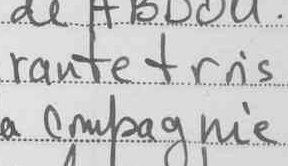 de ABDOU.
rante trois
a compagnie